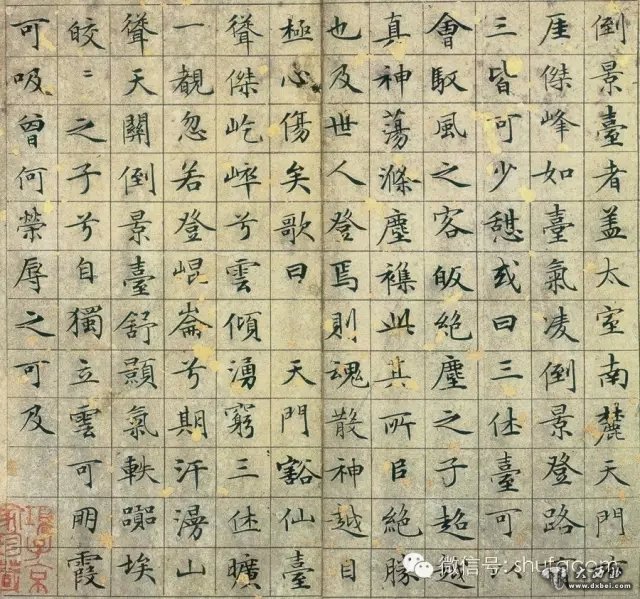 倒景臺者盖太室南麓天門
厓傑峰如臺氣凌倒景登路有
三皆可少憩或曰三休臺可以
會馭風之客皈絶塵之子超逸
真神蕩滌塵襟此其所㠯絶勝
也及世人登焉則魂散神越目
極心傷矣歌曰　天門豁仙臺
聳傑屹崒兮雲傾湧窮三休曠
一覩忽若登崐崙兮期汗漫山
聳天關倒景臺舒顥氣軼囂埃
皎〻之子兮自獨立雲可朋霞
可吸曾何榮辱之可及
項子京家珍藏
微信号:
大西北
www.dxbei.com